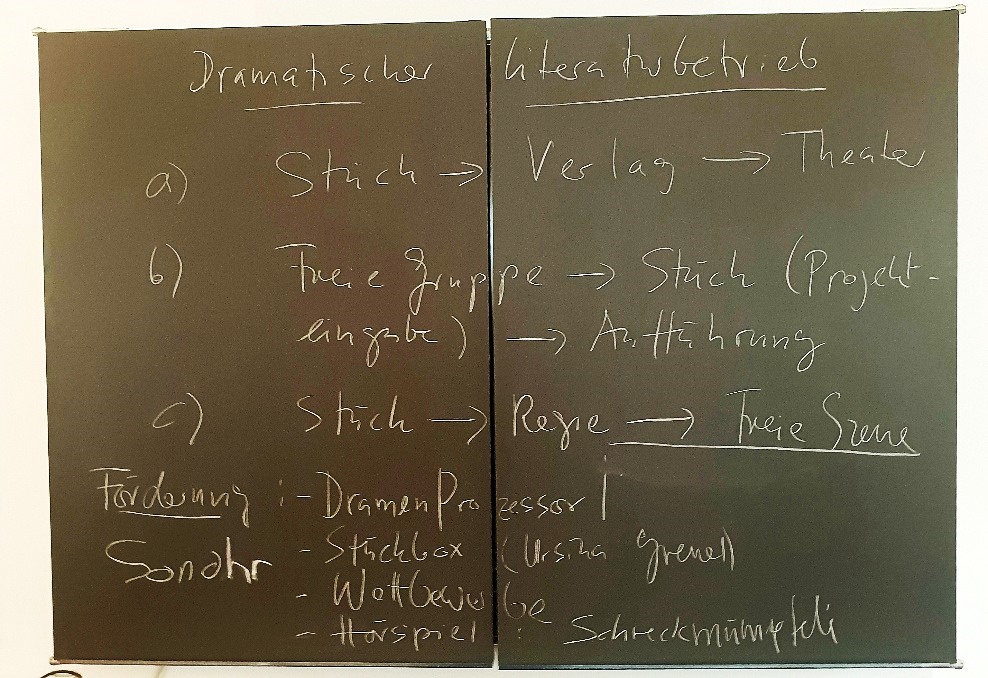 Dramatischer Literaturbetrieb
a) Stück → Verlag → Theater
b) Freie Gruppe → Stück (Projekt-
eingabe) → Aufführung
c) Stück → Regie → Freie Szene
Förderung : - DramenProzessor
- Stückbox (Ursina Greuel)
Sonohr
- Wettbewerbe
- Hörspiel : Schreckmümpfeli